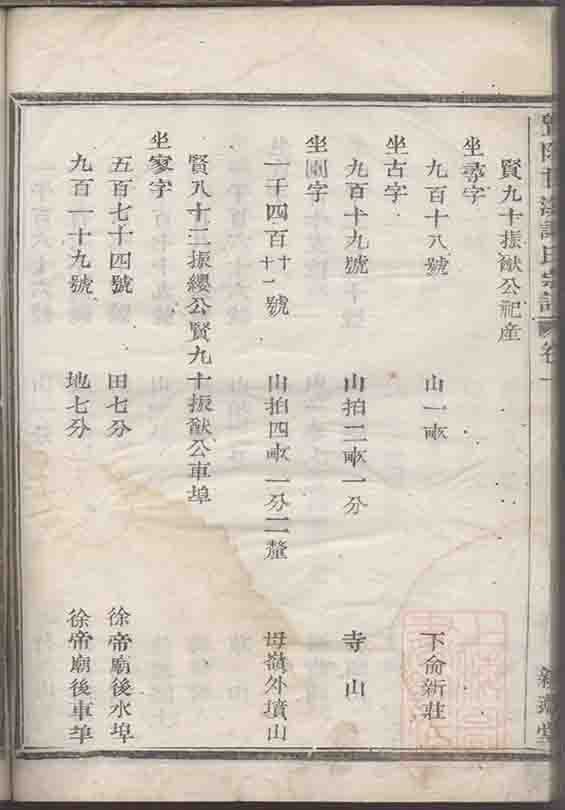 賢九十振猷公祀產
坐尋字
九百十八號 山一畝 下俞新莊
坐古字
九百十九號 山拍二畝一分 寺山
坐園字
一千四百十十一號 山拍四畝一分二釐 母嶺外墳山
賢八十二振纓公賢九十振猷公車埠
坐寥字
五百七十四號 田七分 徐帝廟後水埠
九百二十九號 地七分 徐帝廟後車埠
氏宗譜 卷一
堂